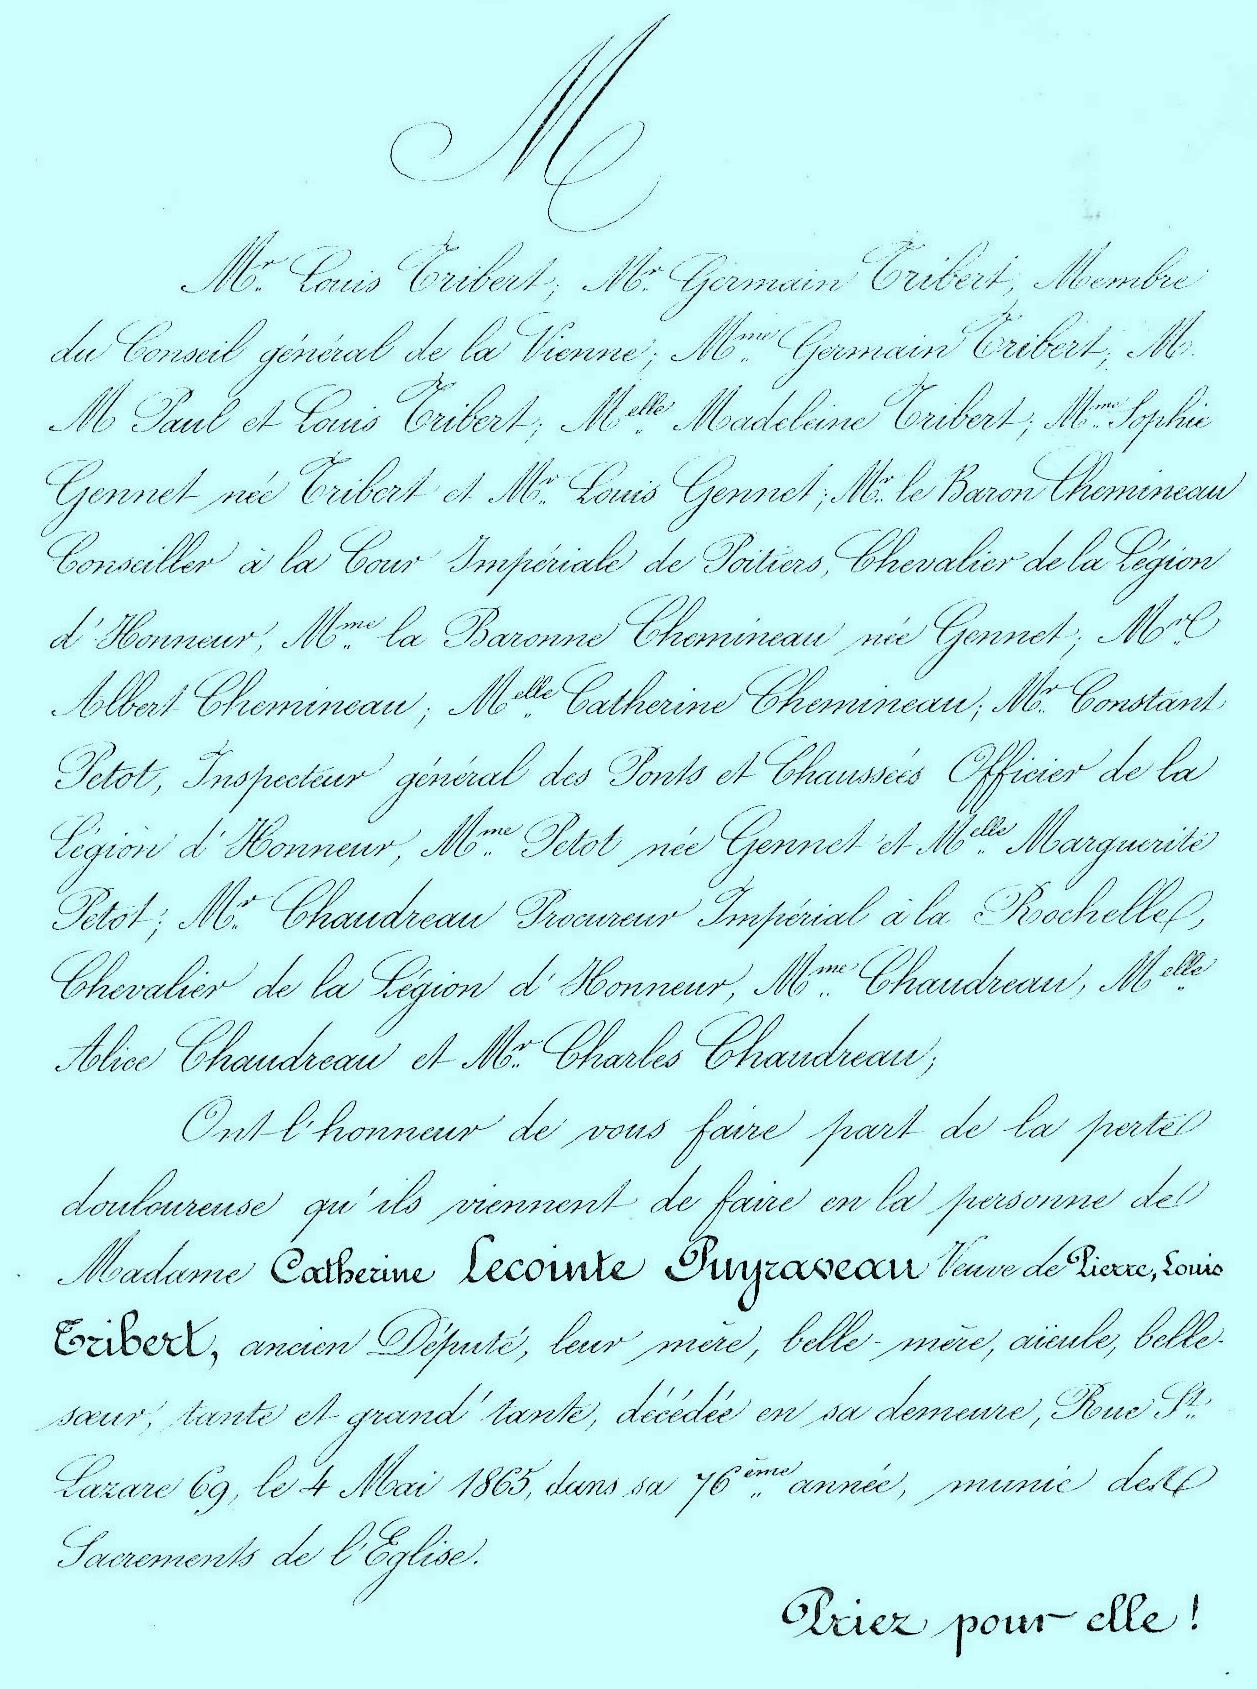 M
Mr. Louis Tribert; Mr. Germain Tribert, Membre
du Conseil général de la Vienne; Mme. Germain Tribert; M.
M Paul et Louis Tribert; Melle. Madeleine Tribert; Mme. Sophie
Gennet née Tribert et Mr. Louis Gennet; Mr. le Baron Chemineau
Conseiller à la Cour Impériale de Poitiers, Chevalier de la Légion
d'Honneur, Mme. la Baronne Chemineau née Gennet; Mr.
Albert Chemineau; Melle. Catherine Chemineau; Mr. Constant
Petot, Inspecteur général des Ponts et Chaussées Officier de la
Légion d'Honneur, Mme. Petot née Gennet et Melle. Marguerite
Petot; Mr. Chaudreau Procureur Impérial à la Rochelle,
Chevalier de la Légion d'Honneur, Mme. Chaudreau, Melle.
Alice Chaudreau et Mr. Charles Chaudreau;
Ont l'honneur de vous faire part de la perte
douloureuse qu'ils viennent de faire en la personne de
Madame Catherine Lecointe Puyraveau Veuve de Pierre, Louis
Tribert, ancien Député, leur mère, belle-mère, aïeule, belle-
sœur, tante et grand'tante, décédée en sa demeure, Rue St.
Lazare 69, le 4 Mai 1865, dans sa 76ème. année, munie des
Sacrements de l'Eglise.
Priez pour elle !